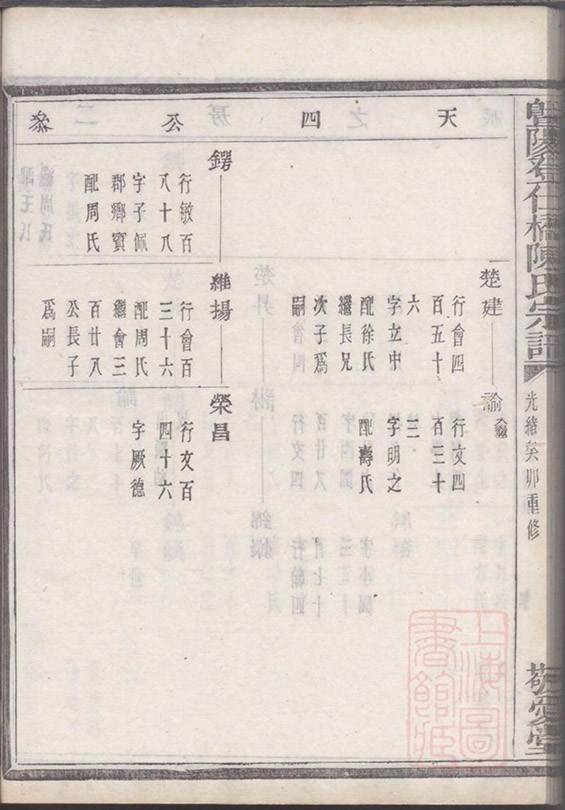 天四公叅
暨陽
仁橋陳氏宗譜
光緒癸卯重修
敬愛堂
楚建
行會四
百五十
六
字立中
配徐氏
繼長兄
次子爲
嗣
諭
行文四
百三十
三
字明之
配壽氏
鍔
行敏百
八十八
字子佩
郡鄉賓
配周氏
維揚
行會百
三十六
配周氏
繼會三
百廿八
公長子
爲嗣
榮昌
行文百
四十六
字厥德
上海圖
書館藏